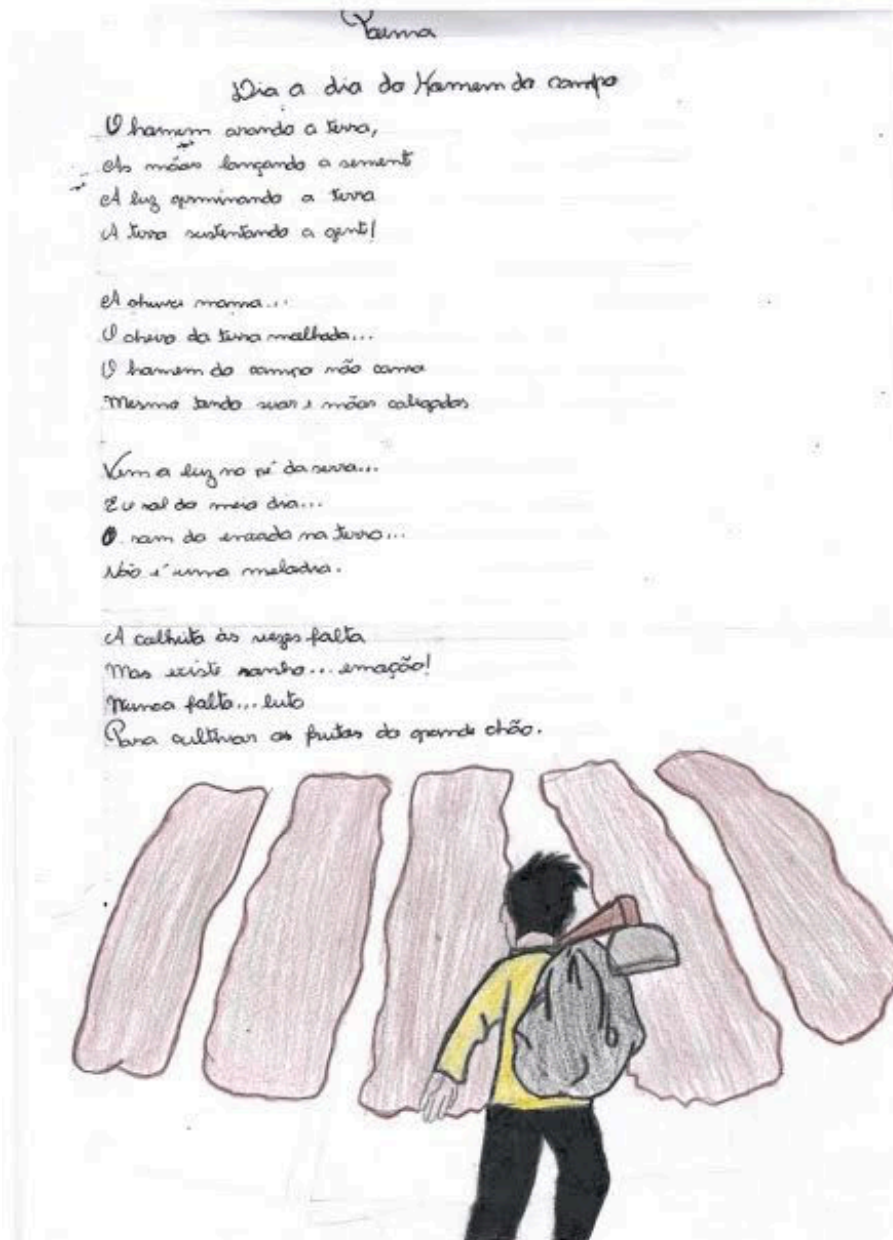 Poema
Dia a dia do Homem do campo
O homem arando a terra,
As mãos lançando a semente
A luz germinando a terra
A terra sustentando a gente!
A chuva mansa...
O cheiro da terra molhada...
O homem do campo não cansa
Mesmo tendo suor e mãos calejadas
Vem a luz no pé da serra...
E o sol do meio dia...
O som da enxada na terra...
Não é uma melodia.
A colheita às vezes falta
Mas existe sonho... emoção!
Nunca falta... luta
Para cultivar os frutos do grande chão.